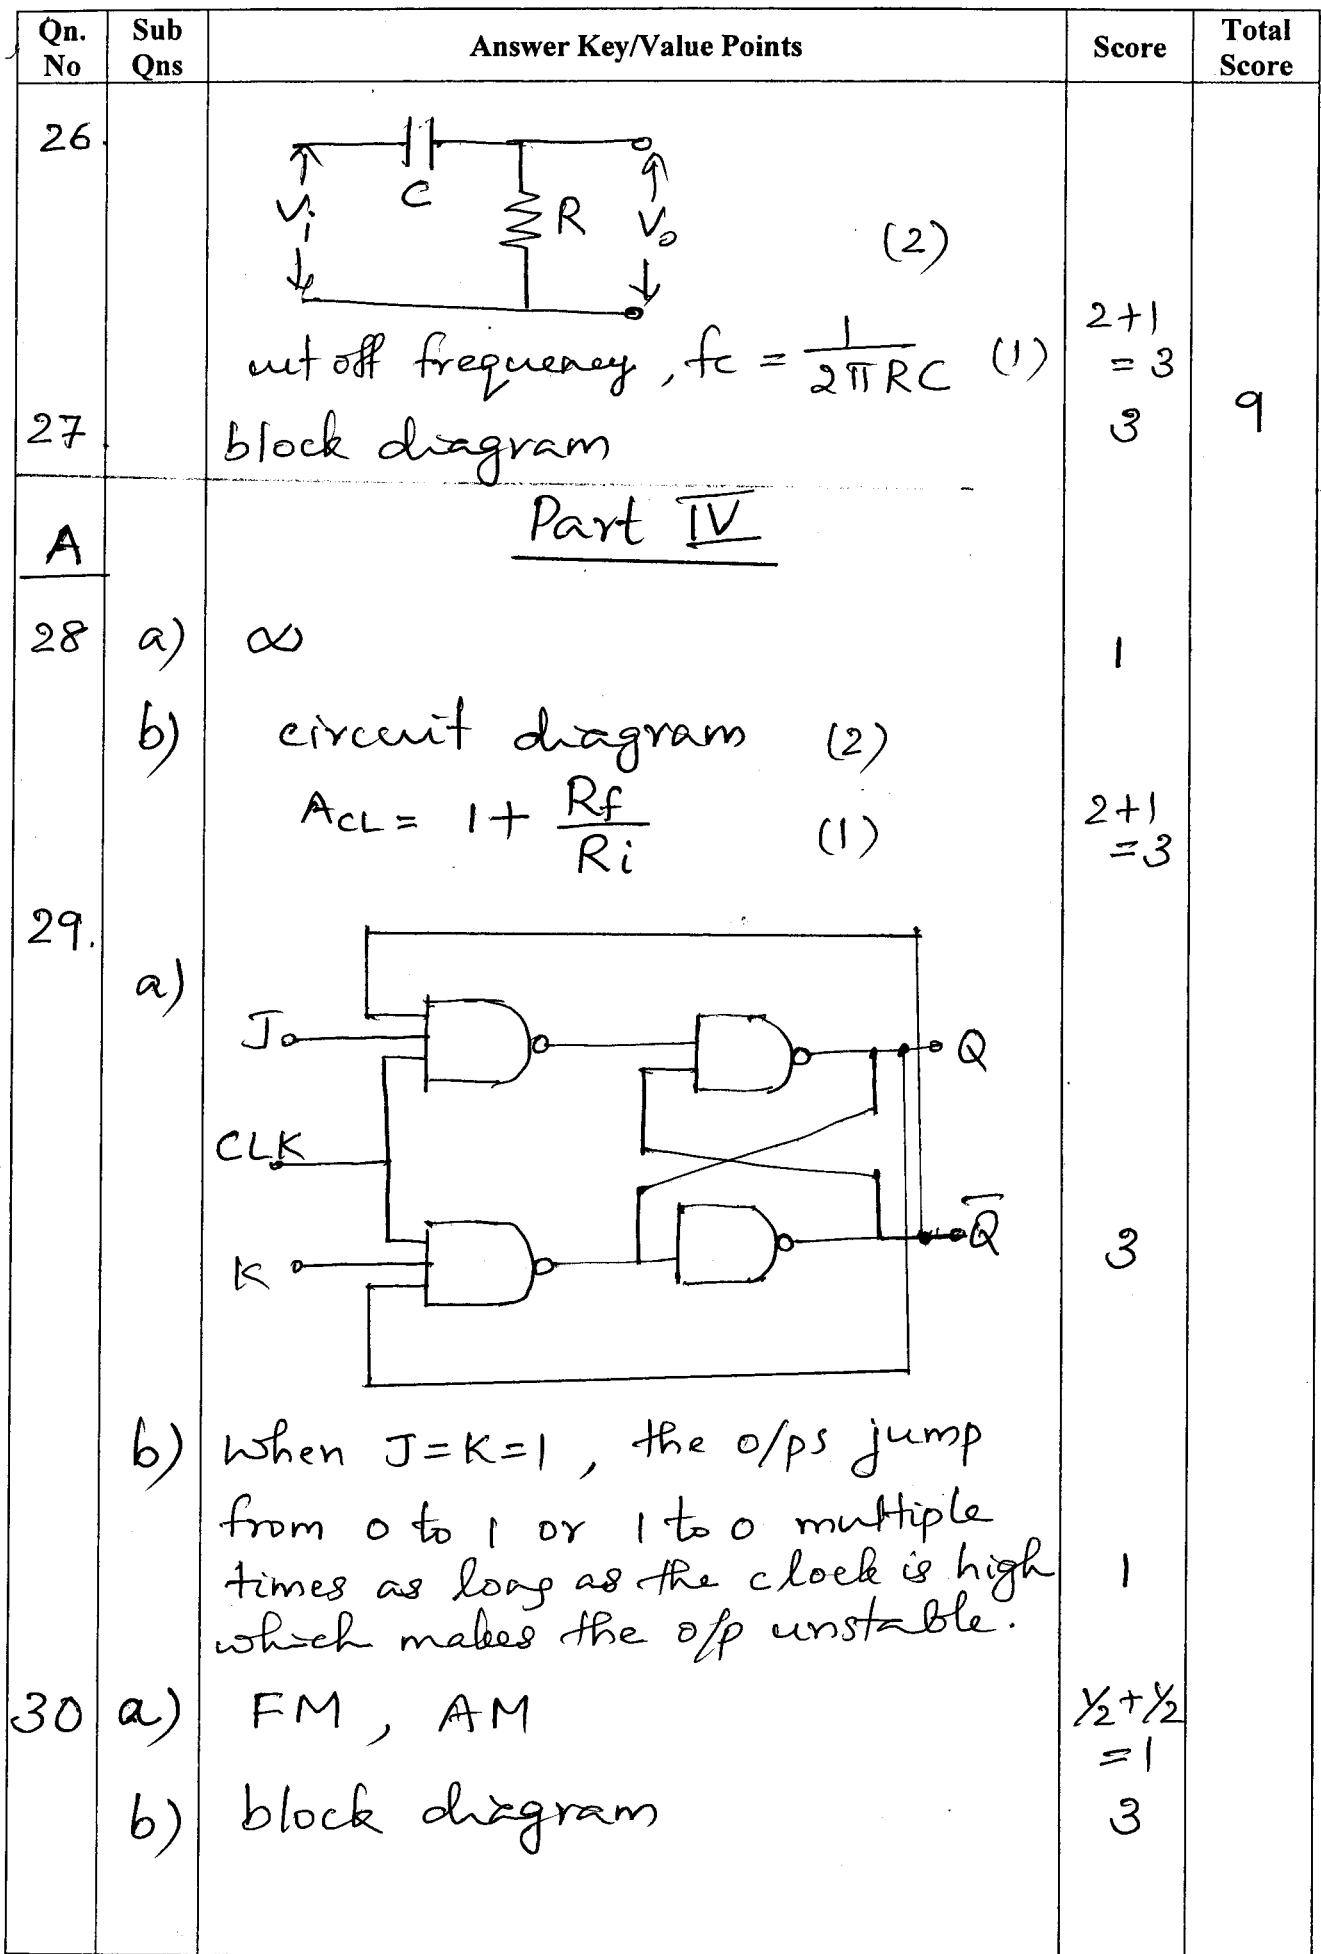 Qn. No Sub Qns Answer Key/Value Points Score Total Score
26.
C
Vi R Vo (2)
cut off frequency, fc = 1/2πRC (1) 2+1 = 3
9
27 block diagram 3
Part IV
A
28 a) ∞ 1
b) circuit diagram (2)
ACL = 1 + Rf/Ri (1) 2+1 = 3
29.
a)
J Q
CLK
K Q̅ 3
b) when J=K=1, the o/ps jump
from 0 to 1 or 1 to 0 multiple
times as long as the clock is high 1
which makes the o/p unstable.
30 a) FM, AM ½+½ = 1
b) block diagram 3